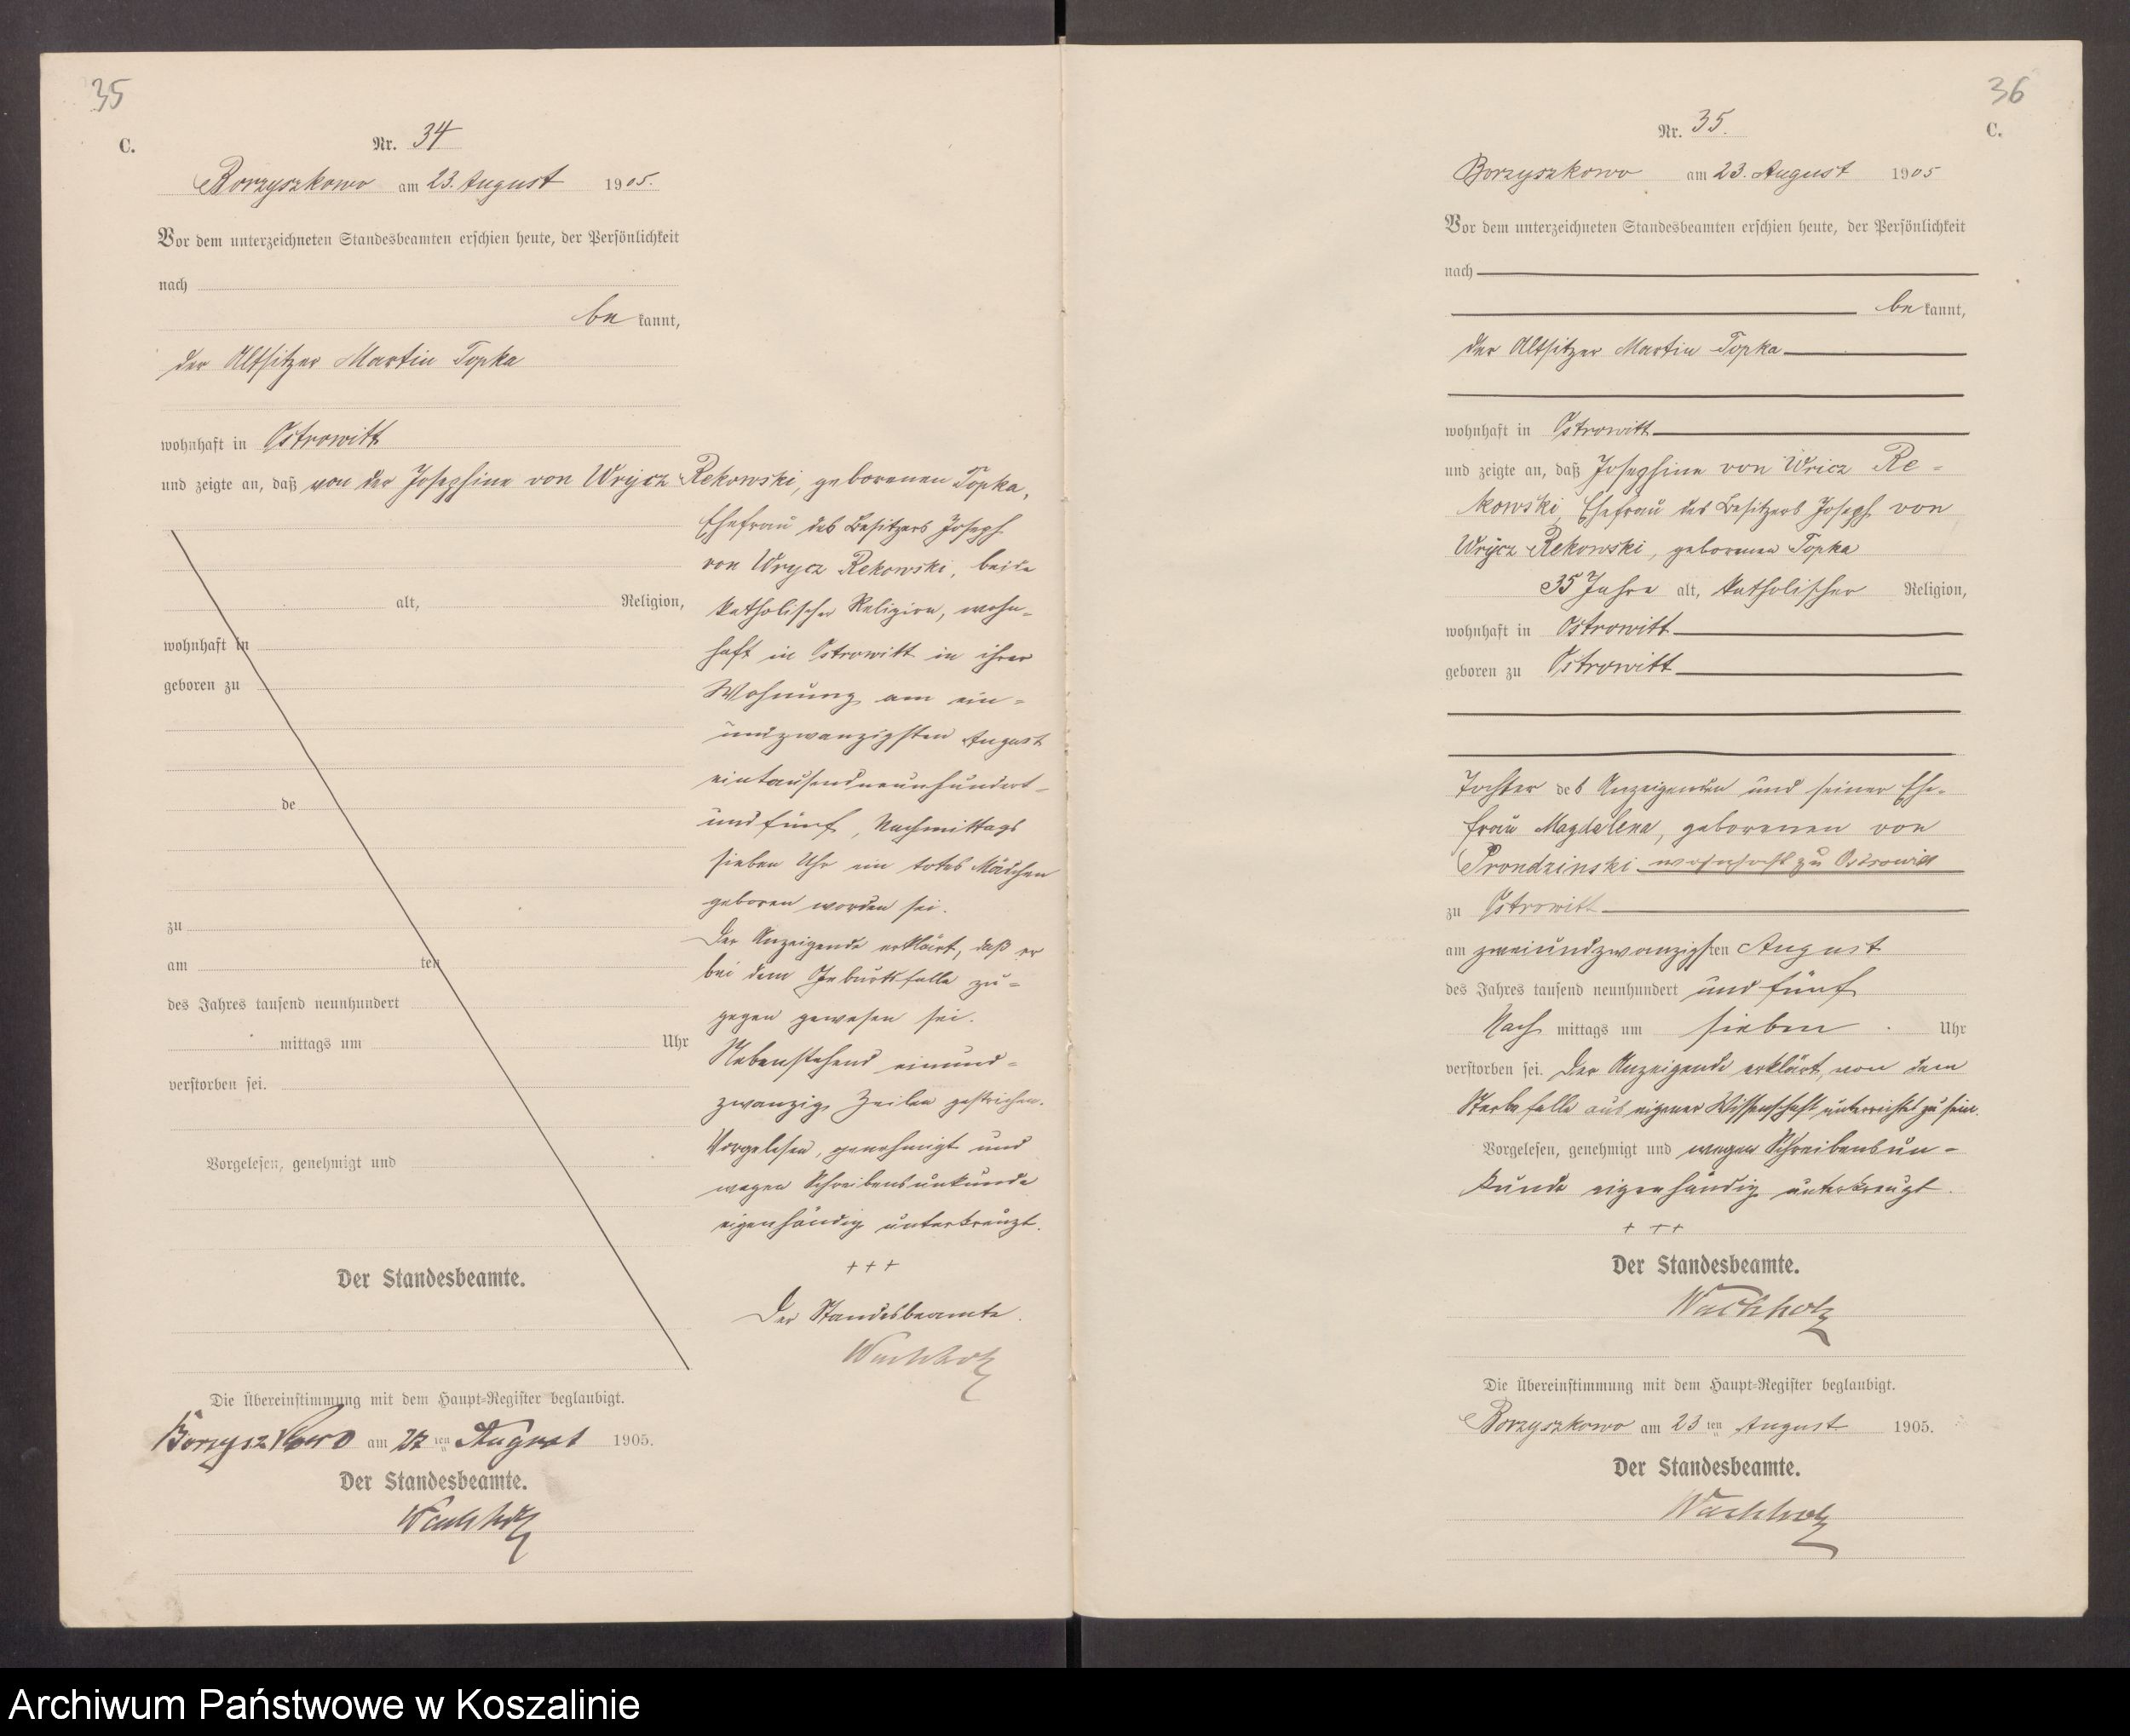 35
C.
Nr. 34
Borzyszkowo am 23. August 1905.
Vor dem unterzeichneten Standesbeamten erschien heute, der Persönlichkeit
nach
be kannt,
der Altsitzer Martin Topka
wohnhaft in Ostrowitt
und zeigte an, daß von der Josephine von Wrycz Rekowski, geborenen Topka,
Ehefrau des Besitzers Joseph
von Wrycz Rekowski, beide
katholischer Religion, wohn-
haft in Ostrowitt in ihrer
Wohnung am ein-
undzwanzigsten August
eintausendneunhundert-
und fünf, Nachmittags
sieben Uhr ein totes Mädchen
geboren worden sei.
Der Anzeigende erklärt, daß er
bei dem Geburtsfalle zu-
gegen gewesen sei.
Nebenstehend einund-
zwanzig Zeilen gestrichen.
Vorgelesen, genehmigt und
wegen Schreibensunkunde
eigenhändig unterkreuzt.
+ + +
Der Standesbeamte.
Wachholz
alt, Religion,
wohnhaft in
geboren zu
de
zu
am ten
des Jahres tausend neunhundert
mittags um Uhr
verstorben sei.
Vorgelesen, genehmigt und
Der Standesbeamte.
Die Übereinstimmung mit dem Haupt-Register beglaubigt.
Borzyszkowo am 27 ten August 1905.
Der Standesbeamte.
Wachholz
36
C.
Nr. 35.
Borzyszkowo am 23. August 1905
Vor dem unterzeichneten Standesbeamten erschien heute, der Persönlichkeit
nach
be kannt,
der Altsitzer Martin Topka
wohnhaft in Ostrowitt
und zeigte an, daß Josephine von Wricz Re-
kowski, Ehefrau des Besitzers Joseph von
Wrycz Rekowski, geborenen Topka
35 Jahre alt, katholischer Religion,
wohnhaft in Ostrowitt
geboren zu Ostrowitt
Tochter des Anzeigenden und seiner Ehe-
frau Magdalena, geborenen von
Prondzinski wohnhaft zu Ostrowitt
zu Ostrowitt
am zweiundzwanzigsten August
des Jahres tausend neunhundert und fünf
Nach mittags um sieben Uhr
verstorben sei. Der Anzeigende erklärt, von dem
Sterbefalle aus eigener Wissenschaft unterrichtet zu sein.
Vorgelesen, genehmigt und wegen Schreibensun-
kunde eigenhändig unterkreuzt.
+ + +
Der Standesbeamte.
Wachholz
Die Übereinstimmung mit dem Haupt-Register beglaubigt.
Borzyszkowo am 23 ten August 1905.
Der Standesbeamte.
Wachholz
Archiwum Państwowe w Koszalinie